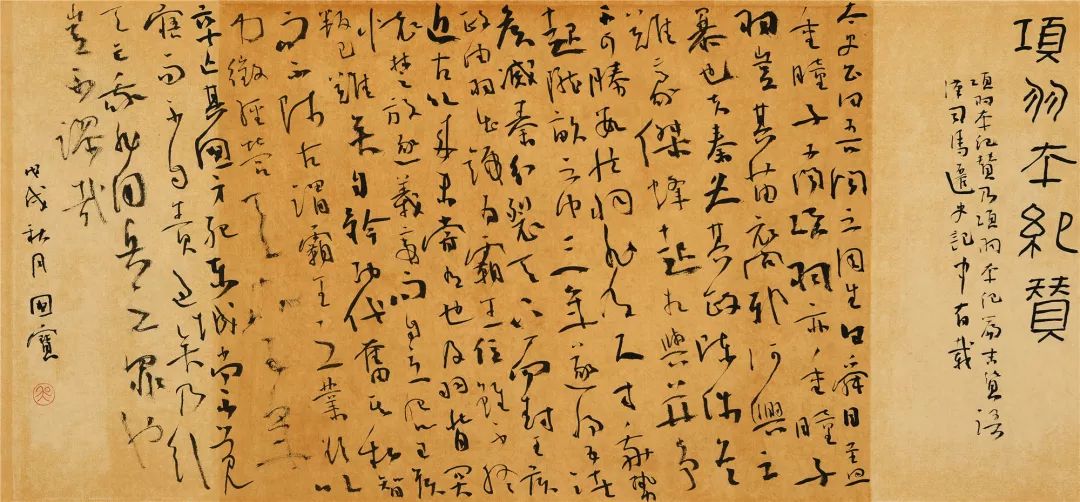 項羽本紀贊
項羽本紀贊乃項羽本紀篇末贊語
漢司馬遷史記中有載
太史公曰吾聞之周生曰舜目蓋
重瞳子又聞項羽亦重瞳子
羽豈其苗裔邪何興之
暴也夫秦失其政陳涉首
難豪傑蜂起相與並爭
不可勝數然羽非有尺寸乘勢
起隴畝之中三年遂將五諸
侯滅秦分裂天下而封王侯
政由羽出號為霸王位雖不終
近古以來未嘗有也及羽背關
懷楚放逐義帝而自立怨王侯
叛己難矣自矜功伐奮其私智
而不師古謂霸王之業欲以
力徵經營天下五年
卒亡其國身死東城尚不覺
寤而不自責過矣乃引
天亡我非用兵之罪也
豈不謬哉
戊戌秋月國寶